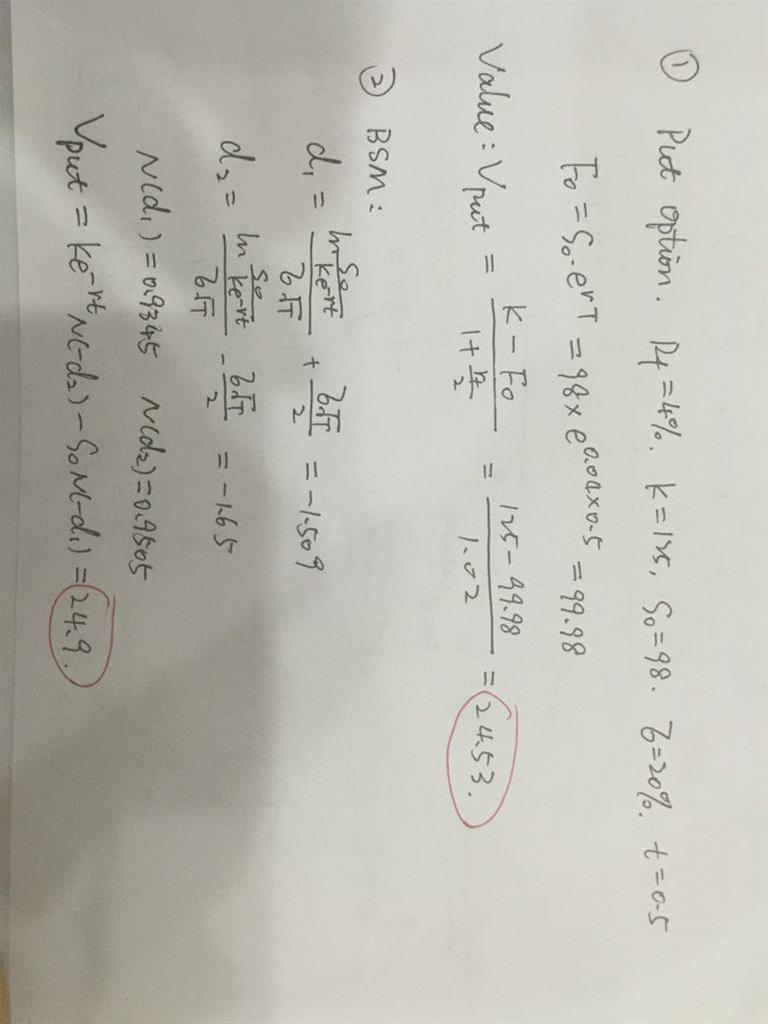 ① Put option. Rf=4%. K=125, S₀=98. σ=20%. t=0.5
F₀ = S₀·e^rT = 98×e^0.04×0.5 = 99.98
Value: Vput = (K-F₀)/(1+r/2) = (125-99.98)/1.02 = 24.53.
② BSM:
d₁ = (ln S₀/(ke^-rt))/(σ√T) + (σ√T)/2 = -1.509
d₂ = (ln S₀/(ke^-rt))/(σ√T) - (σ√T)/2 = -1.65
N(d₁)=0.9345 N(d₂)=0.9505
Vput = ke^-rt N(-d₂) - S₀N(-d₁) = 24.9.